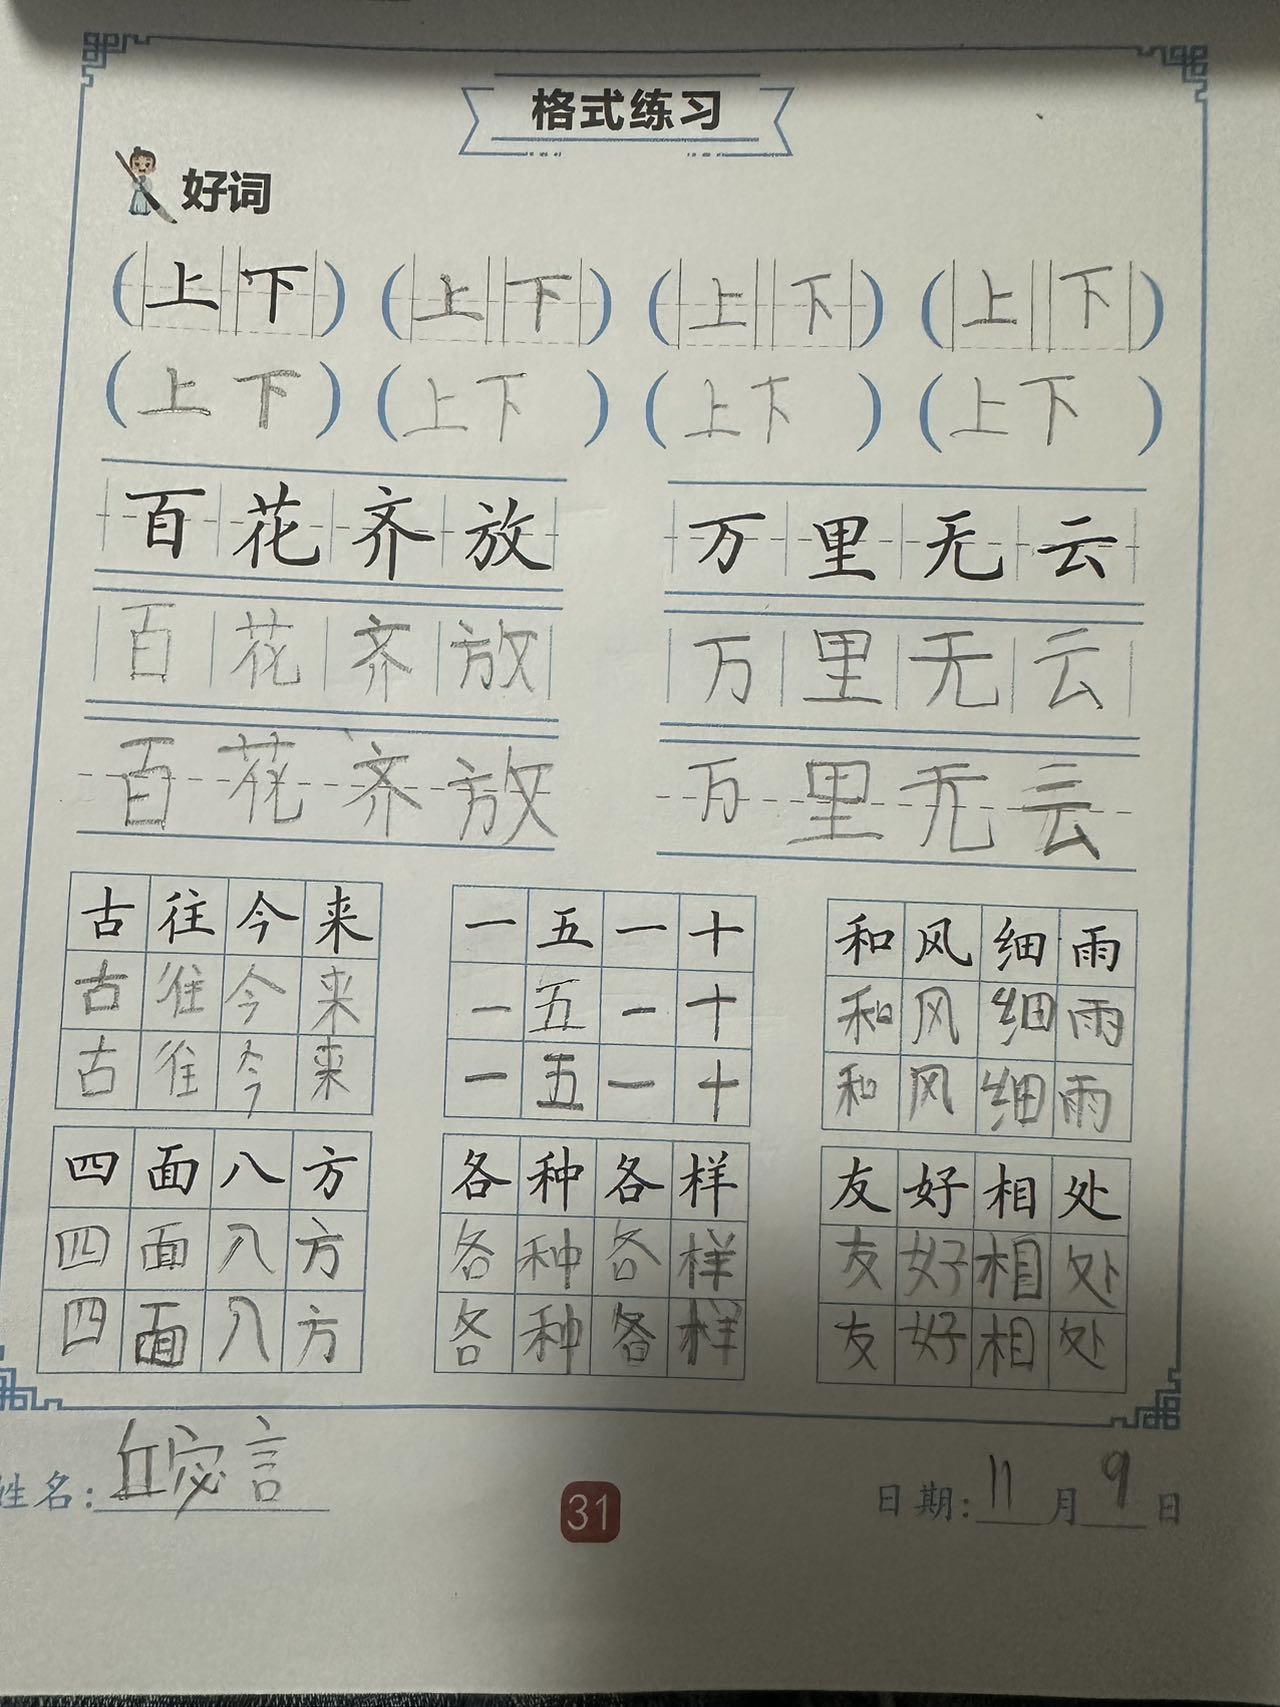 格式练习
好词
(上下) (上下) (上下) (上下)
(上下) (上下) (上下) (上下)
百花齐放 万里无云
百花齐放 万里无云
百花齐放 万里无云
古往今来 一五一十 和风细雨
古往今来 一五一十 和风细雨
古往今来 一五一十 和风细雨
四面八方 各种各样 友好相处
四面八方 各种各样 友好相处
四面八方 各种各样 友好相处
姓名: 丘宓言 31 日期: 11月9日